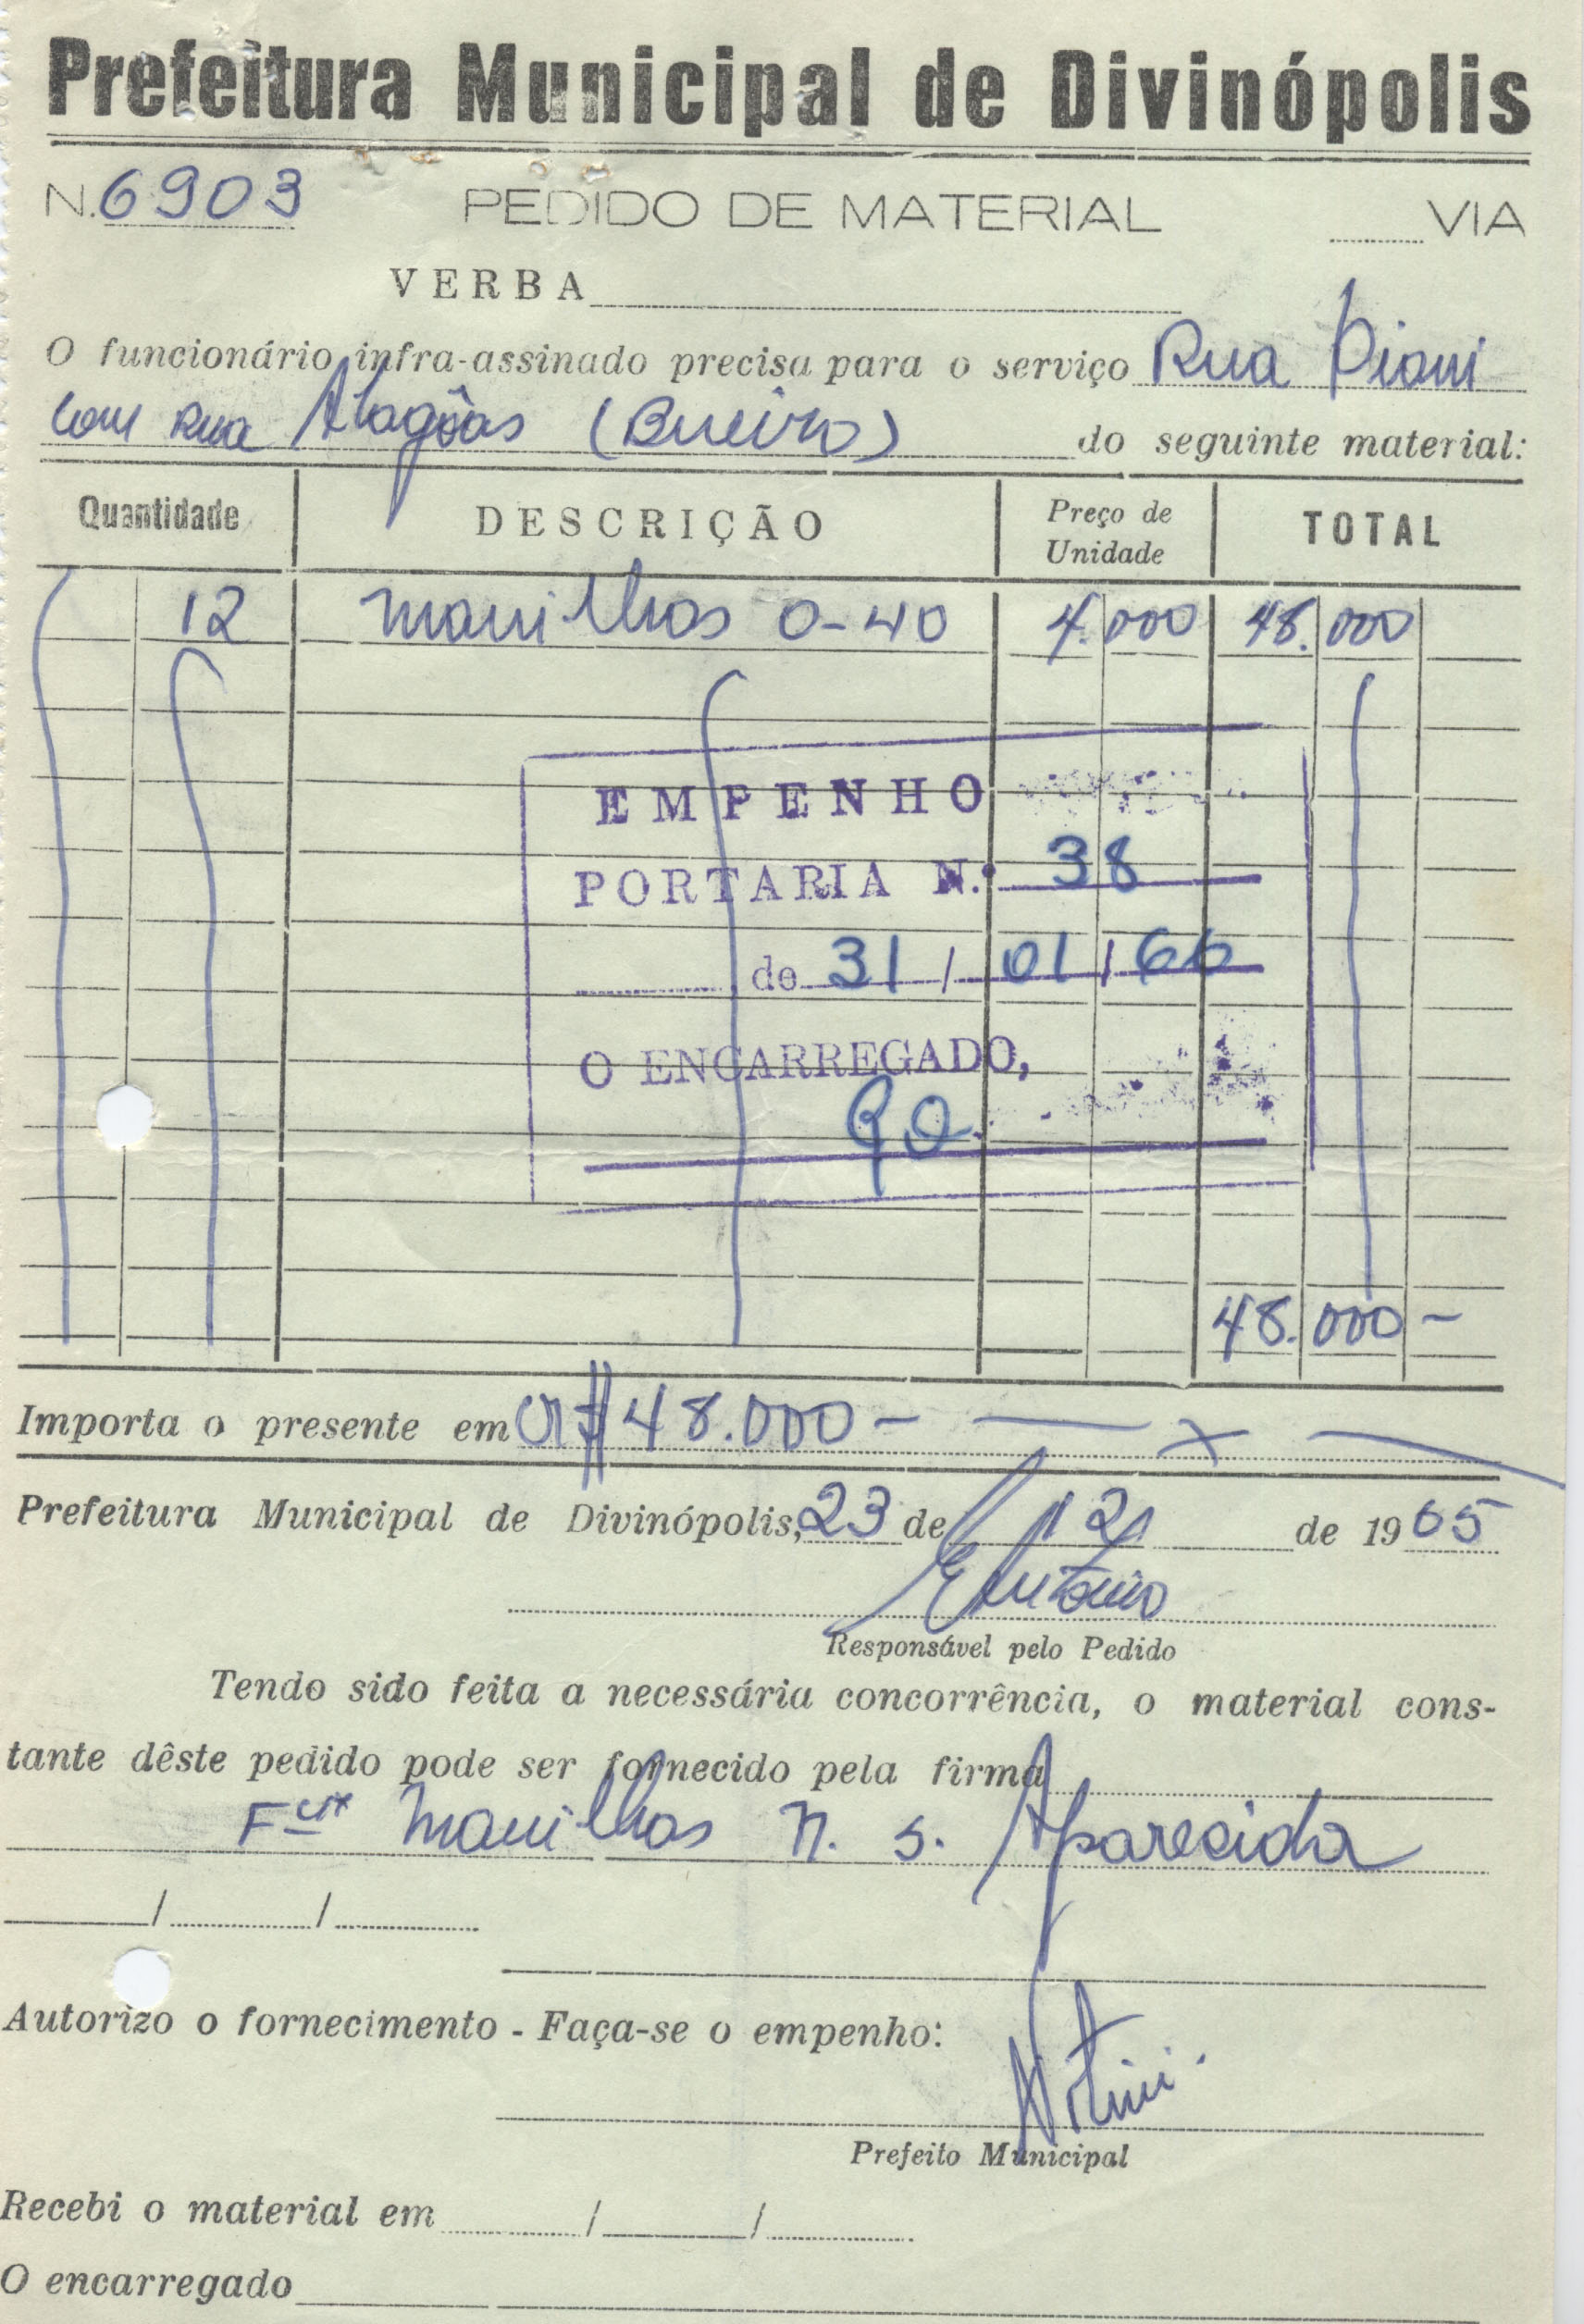 Prefeitura Municipal de Divinópolis
N. 6903 PEDIDO DE MATERIAL VIA
VERBA
O funcionário infra-assinado precisa para o serviço Rua Piaui
com Rua Alagôas (Bueiro) do seguinte material:
Quantidade DESCRIÇÃO Preço de Unidade TOTAL
12 manilhas 0-40 4.000 48.000
EMPENHO
PORTARIA N.º 38
de 31 / 01 / 66
O ENCARREGADO,
48.000 -
Importa o presente em Cr$ 48.000 - — x —
Prefeitura Municipal de Divinópolis, 23 de 12 de 1965
Responsável pelo Pedido
Tendo sido feita a necessária concorrência, o material cons-
tante dêste pedido pode ser fornecido pela firma
Manilhas N. S. Aparecida
/ /
Autorizo o fornecimento - Faça-se o empenho:
Notini
Prefeito Municipal
Recebi o material em / /
O encarregado